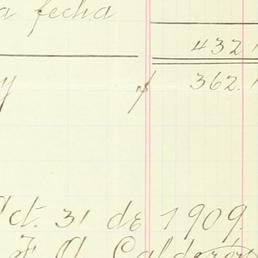 a fecha
432
y $ 362.
Oct. 31 de 1909.
F. A. Calderón